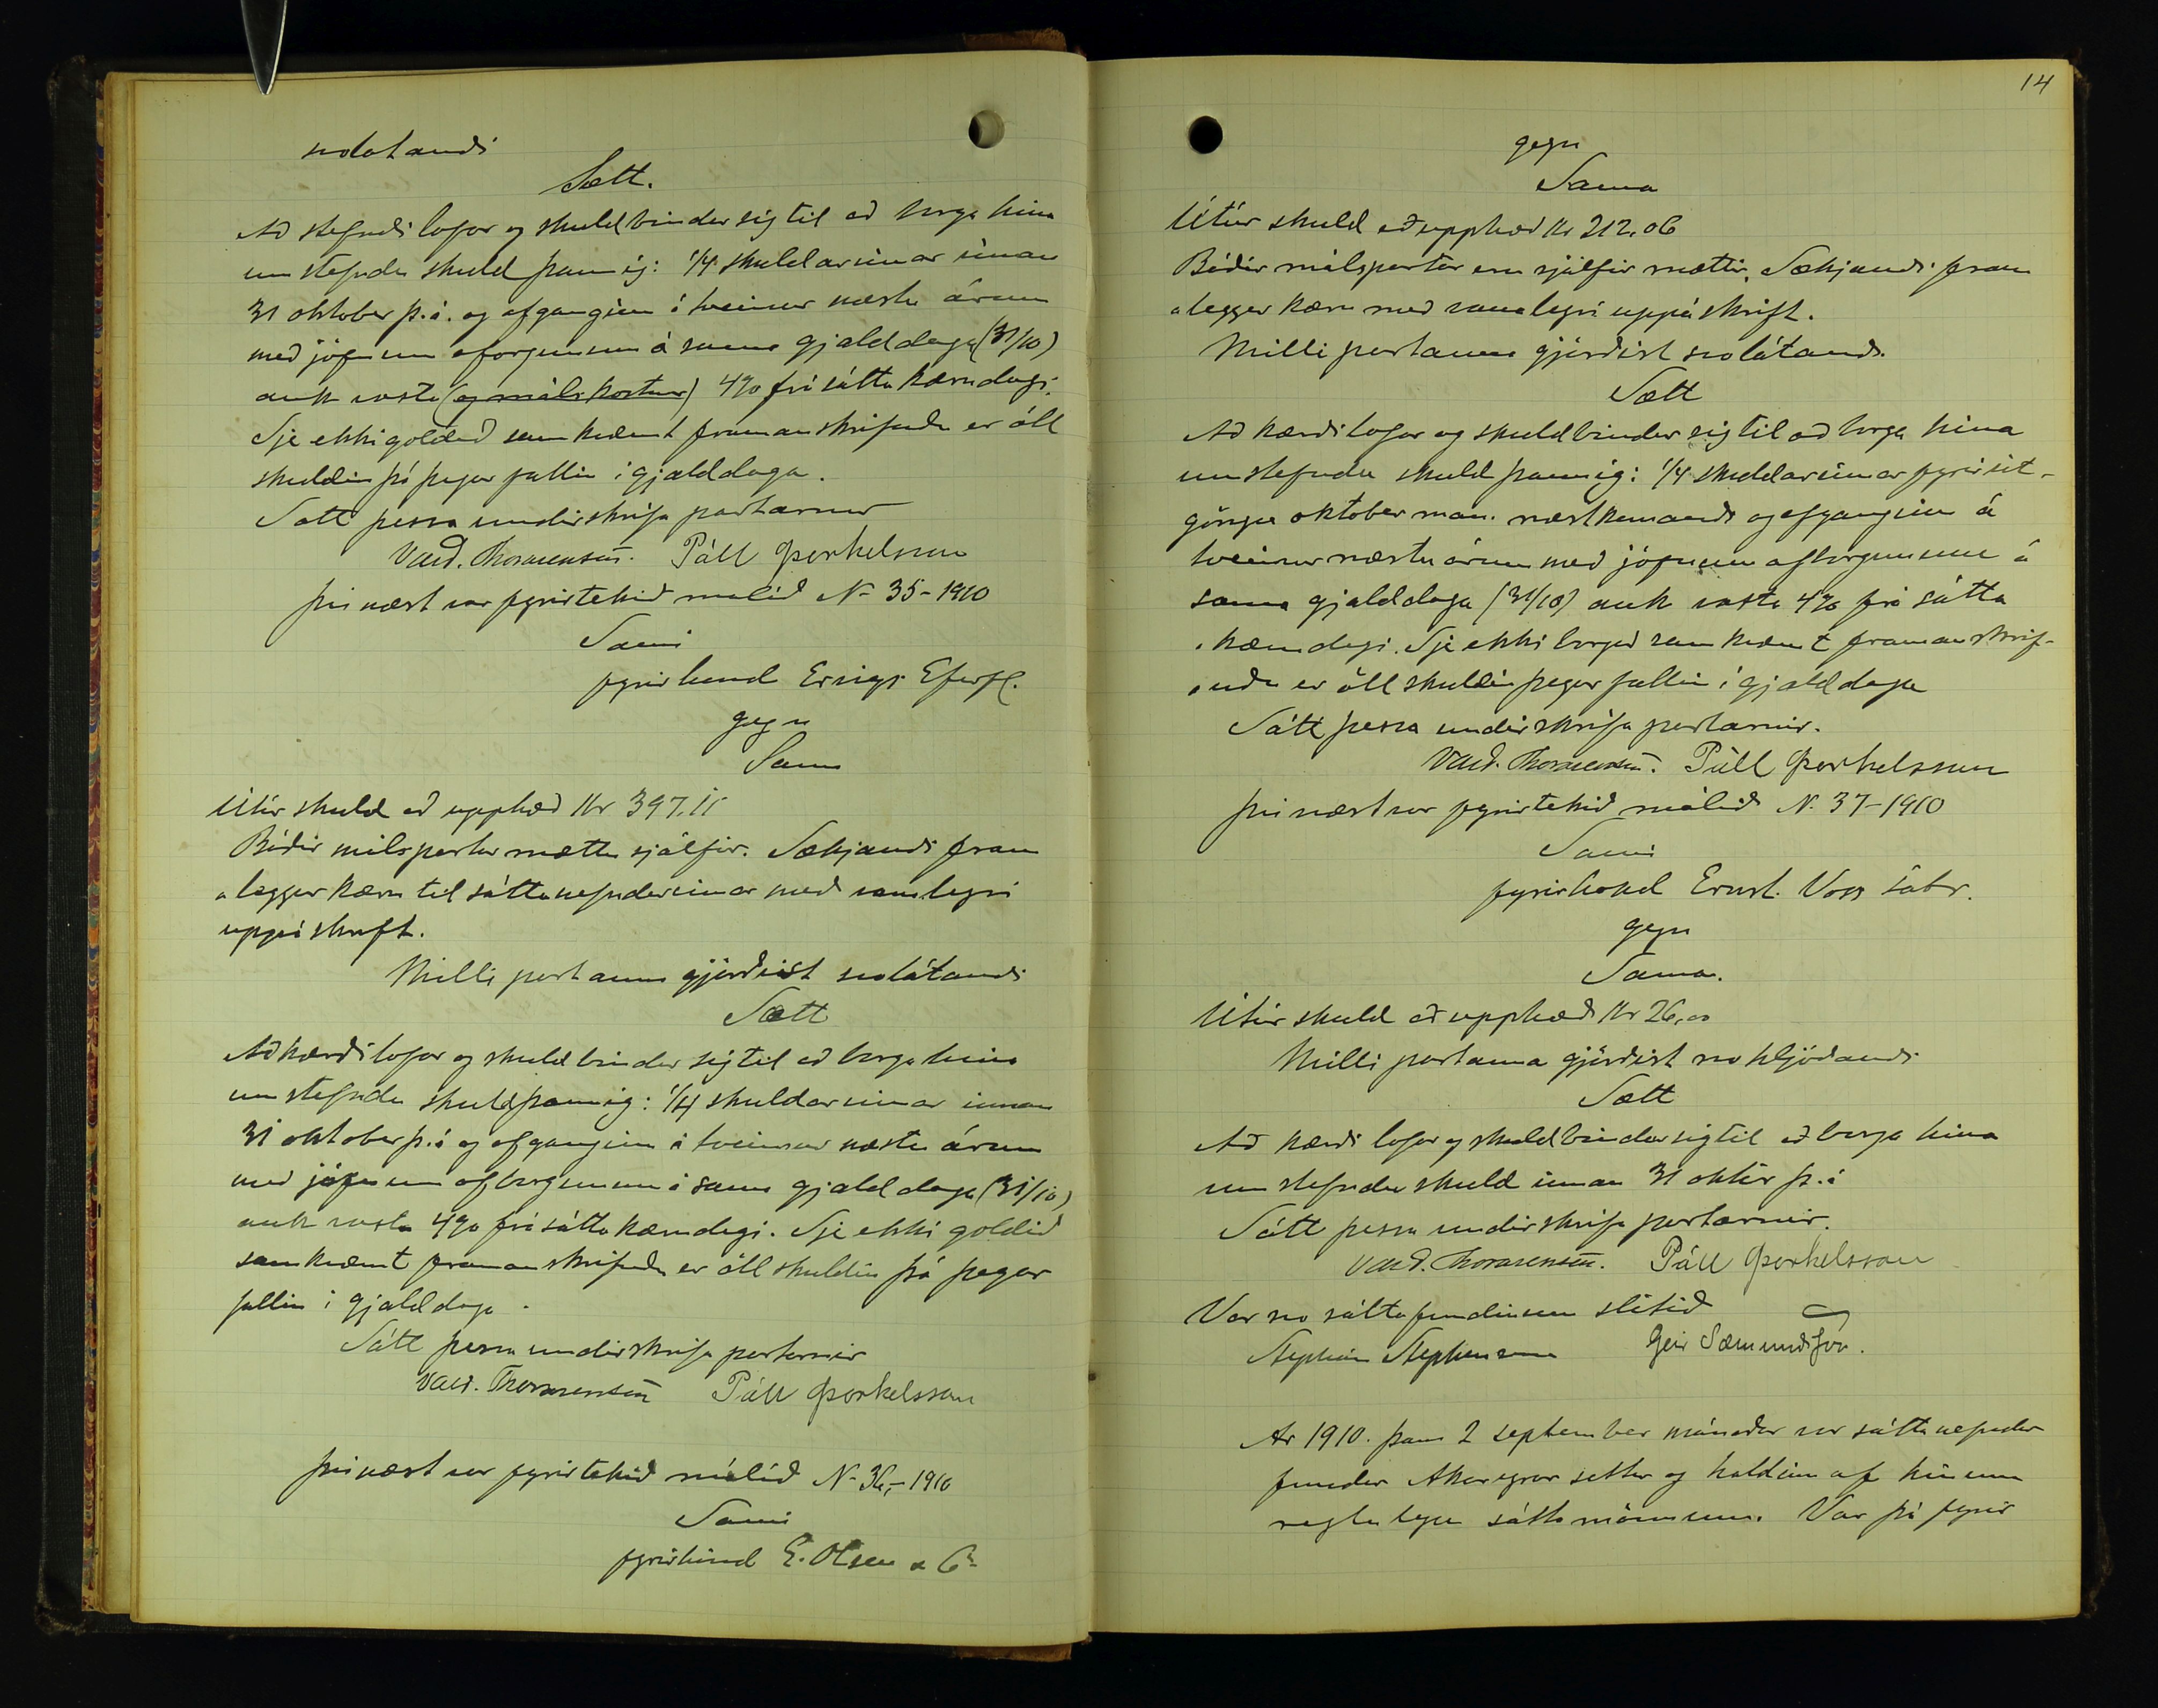 svolatandi
Sætt.
Að stefndi lofar og skuldbindur sig til að borga hina
umstefndu skuld þannig: 1/4 skuldarinnar innan
31 oktober þ.á. og afganginn á tveimur næstu árum
með jöfnum aforgunum á sama gjalddaga (31/10)
auk vaxta (og málskostnar) 4% frá sáttakærudegi.
Sje ekki goldið samkvæmt framanskrifuðu er öll
skuldin þá þegar fallin i gjalddaga.
Sátt þessa undirskrifa partarnir
Vald. Thorarensen. Páll Þorkelsson
Því næst var fyrirtekið málið N- 35-1910
Sami
fyrir hönd
gegn
Sama
Útúr skuld að upphæð Kr 397.11
Báðir málspartar mættu sjálfir. Sækjandi fram
"leggur kæru til sáttanefndarinnar með samlegri
uppáskrift.
Milli partanna gjörðist svolátandi
Sætt
Að kærði lofar og skuldbindur sig til að borga hina
umstefndu skuld þannig: 1/4 skuldarinnar innan
31 oktober þ.á og afganginn á tveimur næstu árum
með jöfnum afborgunum á sama gjalddaga (31/10)
auk vaxta 4% frá sáttakærudegi. Sje ekki goldið
samkvæmt framanskrifuðu er öll skuldin þá þegar
fallin i gjalddaga.
Sátt þessa undirskrifa partarnir
Vald. Thorarensen Páll Þorkelsson
Því næst var fyrirtekið málið N- 36,-1910
Sami
fyrir hönd E. Olsen & Co
14
gegn
Sama
Útúr skuld að upphæð Kr 212,06
Báðir málspartar eru sjálfir mættir. Sækjandi fram
"leggur kæru með samalegri uppáskrift.
Milli partanna gjörðist svolátandi
Sætt
Að kærði lofar og skuldbindur sig til að borga hina
umstefndu skuld þannig: 1/4 skuldarinnar fyrir út-
göngu oktober mán. næstkomandi og afganginn á
tveimur næstu árum með jöfnum afborgunum á
sama gjalddaga (31/10) auk vaxta 4% frá sátta
"kærudegi. Sje ekki borgað samkvæmt framanskrif-
"uðu er öll skuldin þegar fallin í gjalddaga
Sátt þessa undirskrifa partarnir.
Vald. Thorarensen. Páll Þorkelsson
Því næst var fyrirtekið málið N. 37-1910
Sami
fyrir hönd Ernst Voss
gegn
Sama.
Útúr skuld að upphæð Kr 26,00
Milli partanna gjörðist svo hljóðandi
Sætt
Að kærði lofar og skuldbindur sig til að borga hina
umstefndu skuld innan 31 októr þ.á
Sátt þessa undirskrifa partarnir.
Vald. Thorarensen. Páll Þorkelsson
Var svo sáttafundinum slitið
Stephán Stephensen Geir Sæmundsson.
Ár 1910. þann 2 september mánaðar var sáttanefndar
fundur Akureyrar settur og haldinn af hinum
reglulegu sáttamönnum. Var þá fyrir